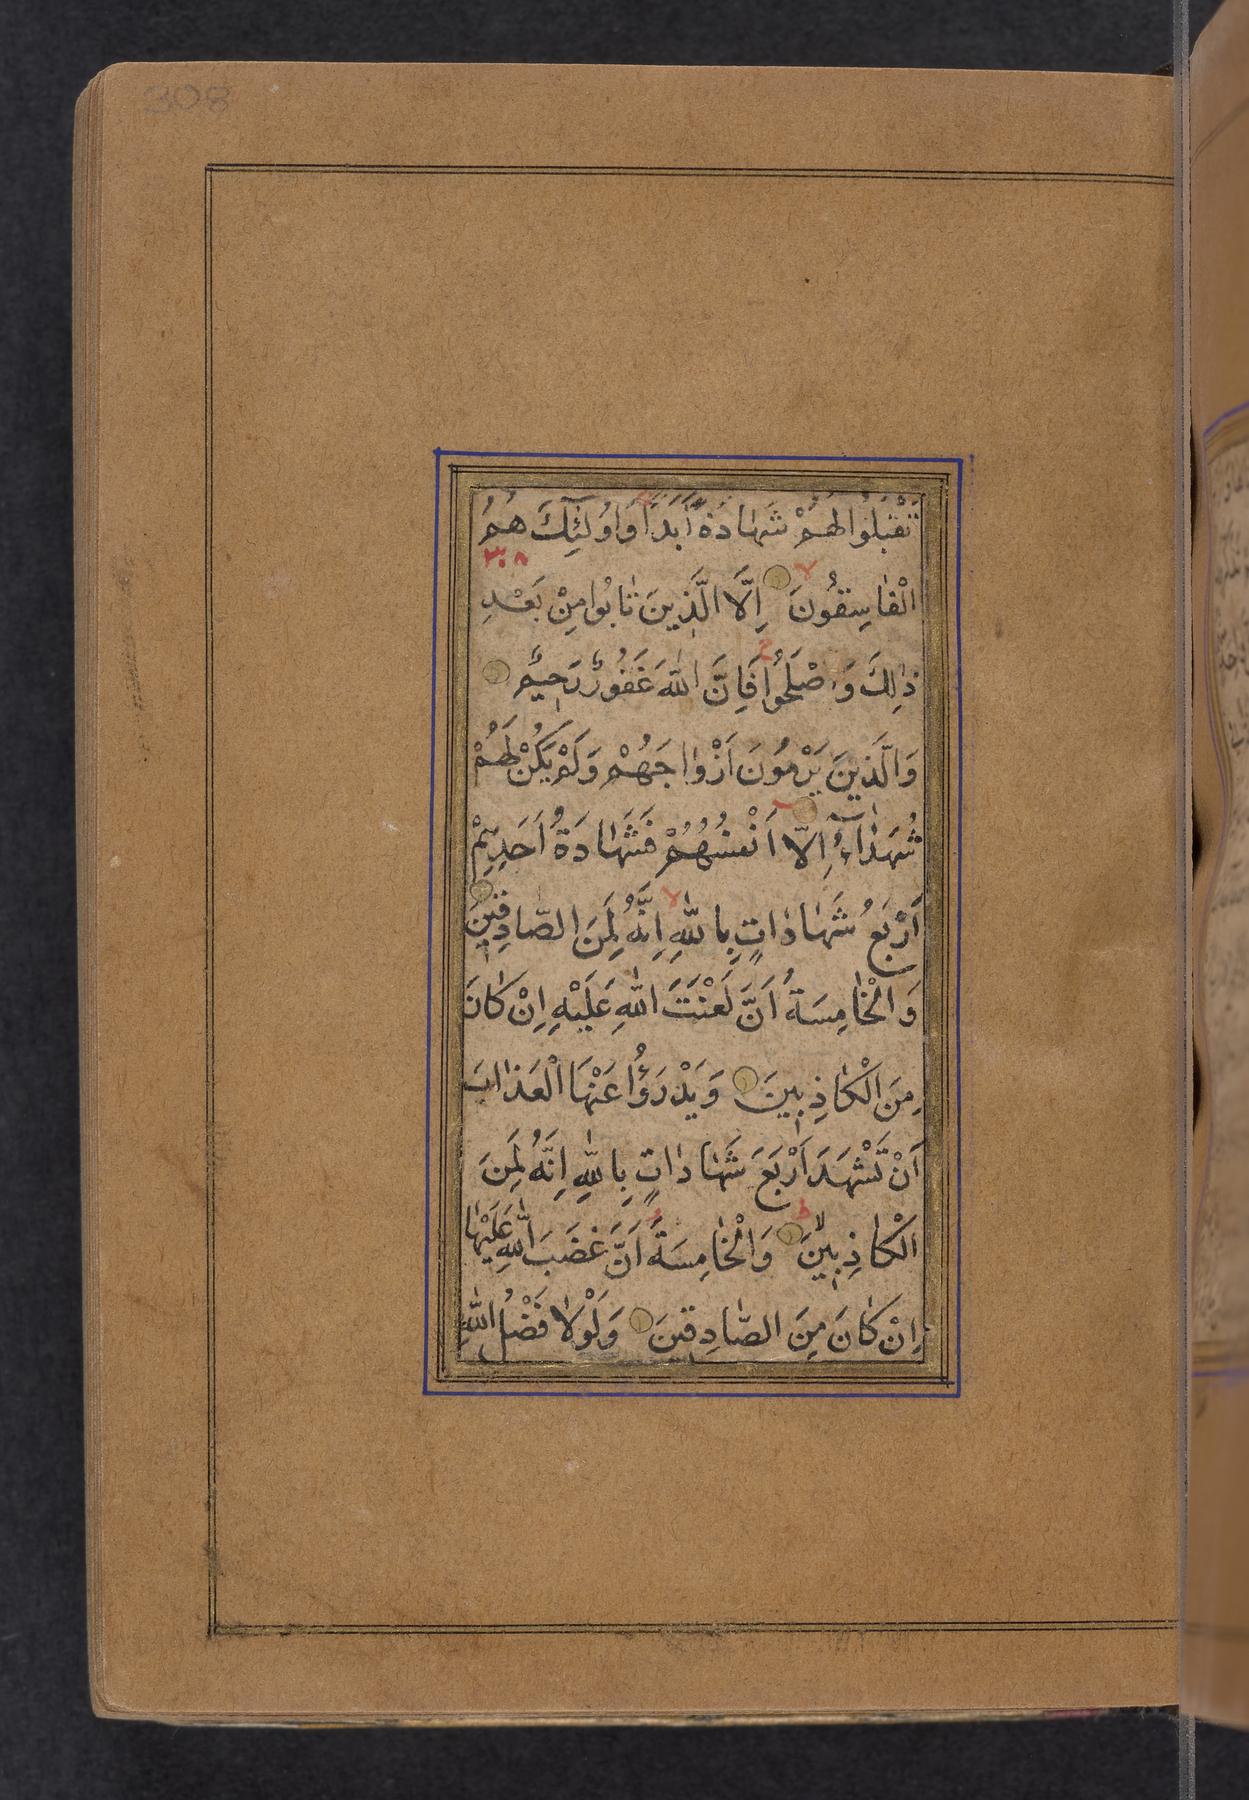 308
تَقْبَلُوا لَهُمْ شَهَادَةً أَبَدًا وَاُولٰئِكَ هُمُ
٣٠٨
الْفٰاسِقُونَ اِلَّا الَّذِينَ تٰابُوا مِنْ بَعْدِ
ذٰلِكَ وَاَصْلَحُوا فَاِنَّ اللّٰهَ غَفُورٌ رَحِيمٌ
وَالَّذِينَ يَرْمُونَ اَزْوٰاجَهُمْ وَلَمْ يَكُنْ لَهُمْ
شُهَدٰاءُ اِلَّا اَنْفُسُهُمْ فَشَهٰادَةُ اَحَدِهِمْ
اَرْبَعُ شَهٰادٰاتٍ بِاللّٰهِ اِنَّهُ لَمِنَ الصّٰادِقِينَ
وَالْخٰامِسَةُ اَنَّ لَعْنَتَ اللّٰهِ عَلَيْهِ اِنْ كٰانَ
مِنَ الْكٰاذِبِينَ وَيَدْرَؤُا عَنْهَا الْعَذٰابَ
اَنْ تَشْهَدَ اَرْبَعَ شَهٰادٰاتٍ بِاللّٰهِ اِنَّهُ لَمِنَ
الْكٰاذِبِينَ وَالْخٰامِسَةَ اَنَّ غَضَبَ اللّٰهِ عَلَيْهٰا
اِنْ كٰانَ مِنَ الصّٰادِقِينَ وَلَوْلٰا فَضْلُ اللّٰهِ